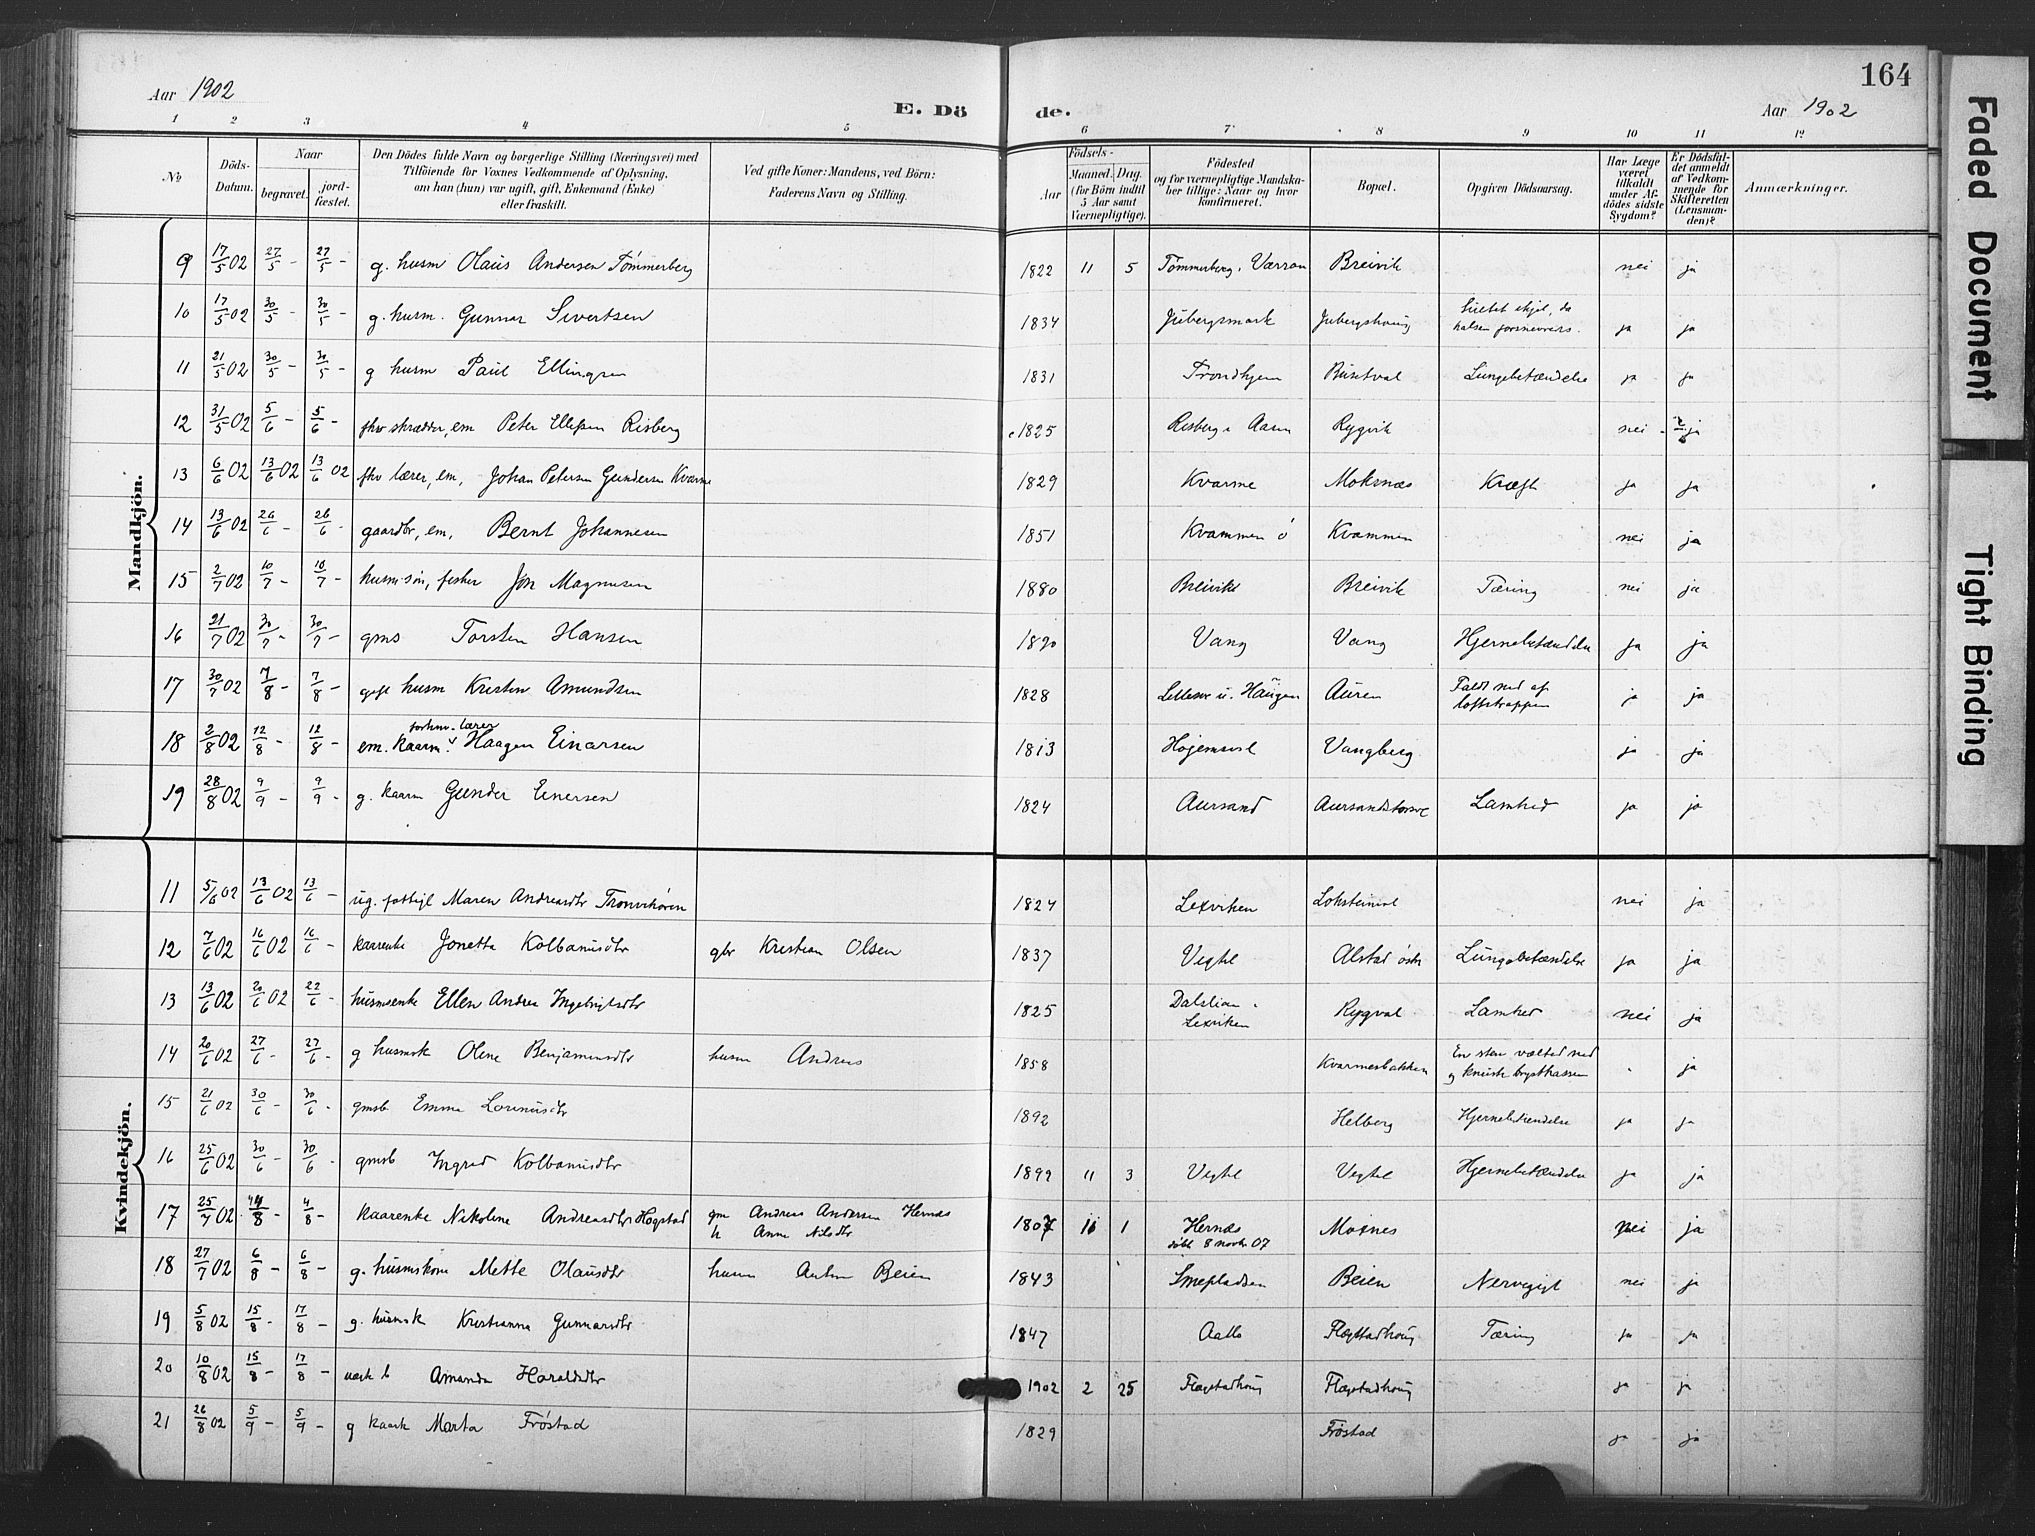 164
Aar 1902
E. Dö
de.
Aar 1902
1 2 3 4 5 6 7 8 9 10 11 12
No
Döds-Datum.
Naar
begravet.
jord-fæstet.
Den Dödes fulde Navn og borgerlige Stilling (Næringsvei) med
Tilföiende for Voxnes Vedkommende af Oplysning,
om han (hun) var ugift, gift, Enkemand (Enke)
eller fraskilt.
Ved gifte Koner: Mandens, ved Börn:
Faderens Navn og Stilling.
Födsels-
Aar
Maaned. Dag.
(for Börn indtil
5 Aar samt
Værnepligtige).
Födested
og for værnepligtige Mandska-
ber tillige: Naar og hvor
konfirmeret.
Bopæl.
Opgiven Dödsaarsag.
Har Læge
været
tilkaldt
under Af-
dödes sidste
Sygdom?
Er Dödsfal-
det anmeldt
af Vedkom-
mende for
Skifteretten
(Lensman-
den)?
Anmærkninger.
Mandkjön.
9 17/5 02 27/5 - 27/5 - g. husm Olaus Andersen Tømmerberg 1822 11 5 Tømmerberg, Værran Breivik nei ja
10 17/5 02 30/5 - 30/5 - g. husm. Gunnar Sivertsen 1834 Jubergsmark Juberghoug ja ja
11 21/5 02 30/5 - 30/5 - g husm Paul Ellingsen 1831 Trondhjem Busetval Lungebetændelse ja ja
12 31/5 02 5/6 - 5/6 - fhv skrædder, em Peter Ellefsen Risberg 1825 Risberg i Aasen Rygvik nei - ja
13 6/6 02 13/6 02 13/6 02 fhv lærer, em, Johan Petersen Gundersen Kvarme 1829 Kvarme Moksnæs Kræft ja ja
14 13/6 02 26/6 - 26/6 - gaardbr, em, Bernt Johannesen 1851 Kvammen ö Kvammen nei ja
15 2/7 02 10/7 - 10/7 - husm.søn, fisker Jon Magnusen 1880 Breivik Breivik Tæring nei ja
16 21/7 02 30/7 - 30/7 - gms Torsten Hansen 1890 Vang Vang Hjernebetændelse ja ja
17 30/7 02 7/8 - 7/8 - gift husm Kristen Amundsen 1828 u. Haugan Auren Faldt ned af
loftstrappen ja ja
forhnv. lærer
18 2/8 02 12/8 - 12/8 - em. kaarm. Haagen Einarsen 1813 Vangberg ja ja
19 28/8 02 9/9 - 9/9 - g. kaarm Gunder Einersen 1824 Aursand Lamhed ja ja
Kvindekjön.
11 5/6 02 13/6 02 13/6 - ug. fattigl Maren Andreasdtr 1824 Lexviken nei ja
12 7/6 02 16/6 02 16/6 - kaarenke Jonetta Kolbanusdtr gbr Kristian Olsen 1837 Vigtil Alstad östr Lungebetændelse ja ja
13 13/6 02 20/6 02 22/6 - husmsenke Ellen Andrea Ingebrigtsdtr 1825 Dalslian i
Lexviken Lamhed nei ja
14 20/6 02 27/6 - 27/6 - g husmsk Olene Benjaminsdtr husm Andreas 1858 Kvarmesbakken En sten væltet ned
og knuste brystkassen ja
15 21/6 02 30/6 - 30/6 - gmsb Emma Lorenusdtr 1892 Helberg Hjernebetændelse ja ja
16 25/6 02 30/6 - 30/6 - gmsb Ingrid Kolbanusdtr 1892 11 3 Vigtil Vigtil Hjernebetændelse ja ja
17 25/7 02 4/8 - 4/8 - kaarenke Nikoline Andreasdtr Hogstad gm Andreas Andersen Hernæs
h Anne Nilsdtr 1807 11 1 Hernæs
döbt 8 novbr 07 Moxnes nei ja
18 27/7 02 6/8 - 6/8 - g. husmskone Mette Olausdtr husm Anton Beien 1843 Smepladsen Beien Nervegigt nei ja
19 5/8 02 15/8 - 17/8 - g. husmsk Kristianna Gunnarsdtr 1847 Flægstadhoug Tæring ja ja
20 10/8 02 15/8 - 17/8 - b Amanda Haraldsdtr 1902 2 25 Flægstadhoug Flægstadhoug ja ja
21 26/8 02 5/9 - 5/9 - g kaark Marta Fröstad 1829 Fröstad ja ja
Faded Document
Tight Binding